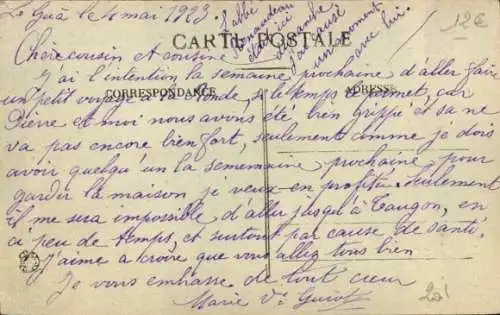 Le Guà le 4 mai 1923
l'abbé
Renaudeau
était ici
dimanche
j'ai causé
un moment
avec lui.
12€
CARTE POSTALE
Chère cousin et cousine
J'ai l'intention la semaine prochaine d'aller fair
CORRESPONDANCE
ADRESSE
un petit voyage à la Ronde, si le temps le permet, car
Pierre et moi nous avons été bien grippé et sa ne
va pas encore bien fort, seulement comme je dois
avoir quelqu'un la semaine prochaine pour
garder la maison, je veux en profité. Seulement
il me sera impossible d'aller jusqu'à Taugon, en
si peu de temps, et surtout par cause de santé.
J'aime à croire que vous allez tous bien
Je vous embrasse de tout cœur
Marie Ve